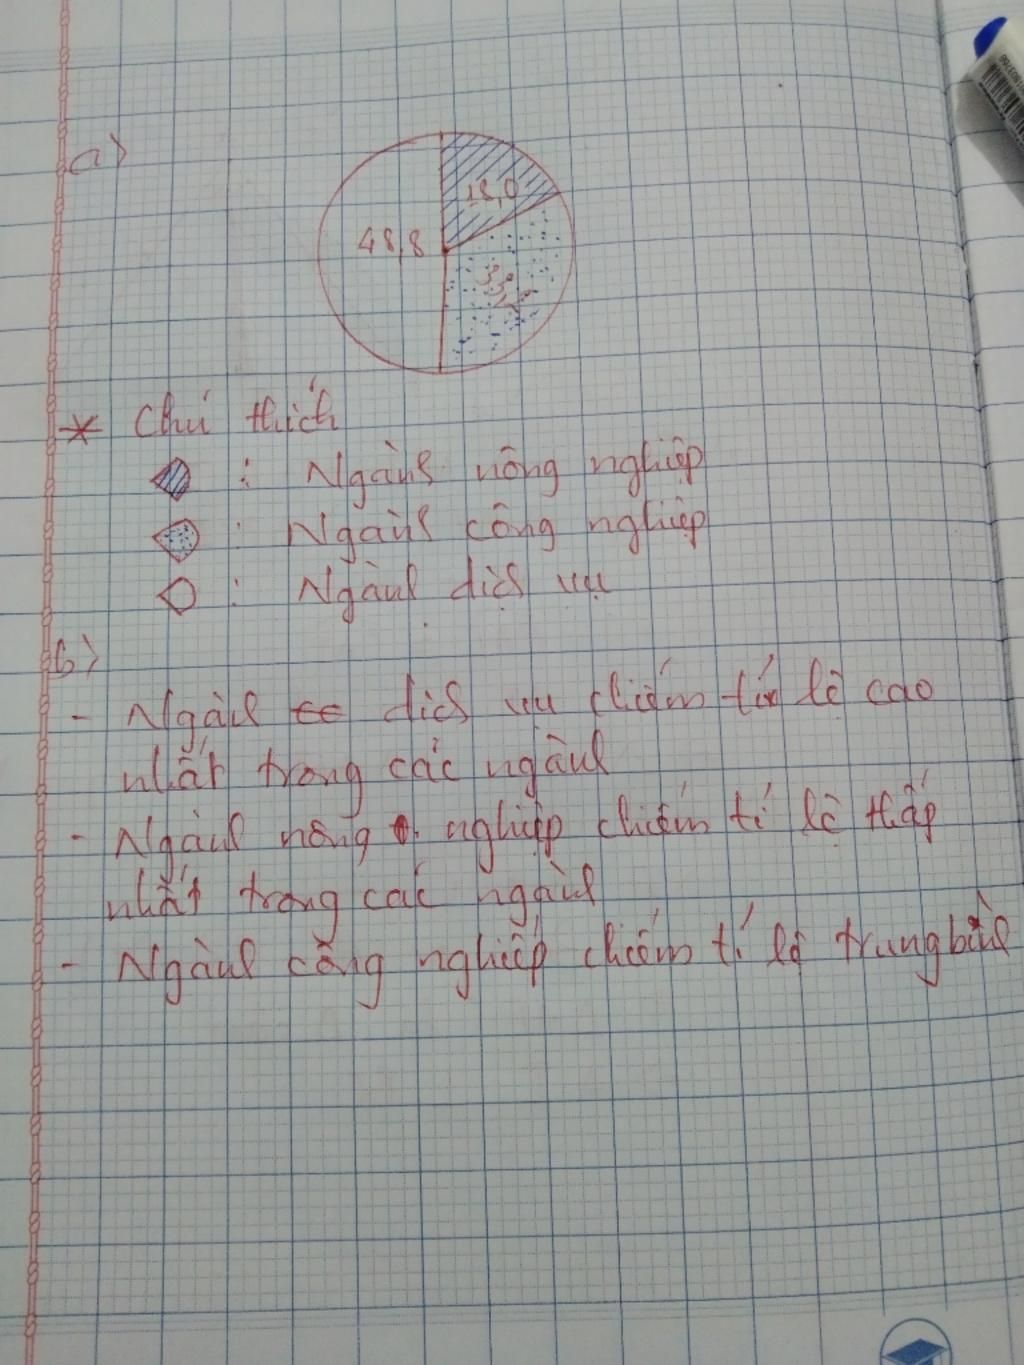 a)
18,0
48,8
* Chú thích
: Ngành nông nghiệp
: Ngành công nghiệp
: Ngành dịch vụ
b)
- Ngành dịch vụ chiếm tỉ lệ cao
nhất trong các ngành
- Ngành nông nghiệp chiếm tỉ lệ thấp
nhất trong các ngành
- Ngành công nghiệp chiếm tỉ lệ trung bình